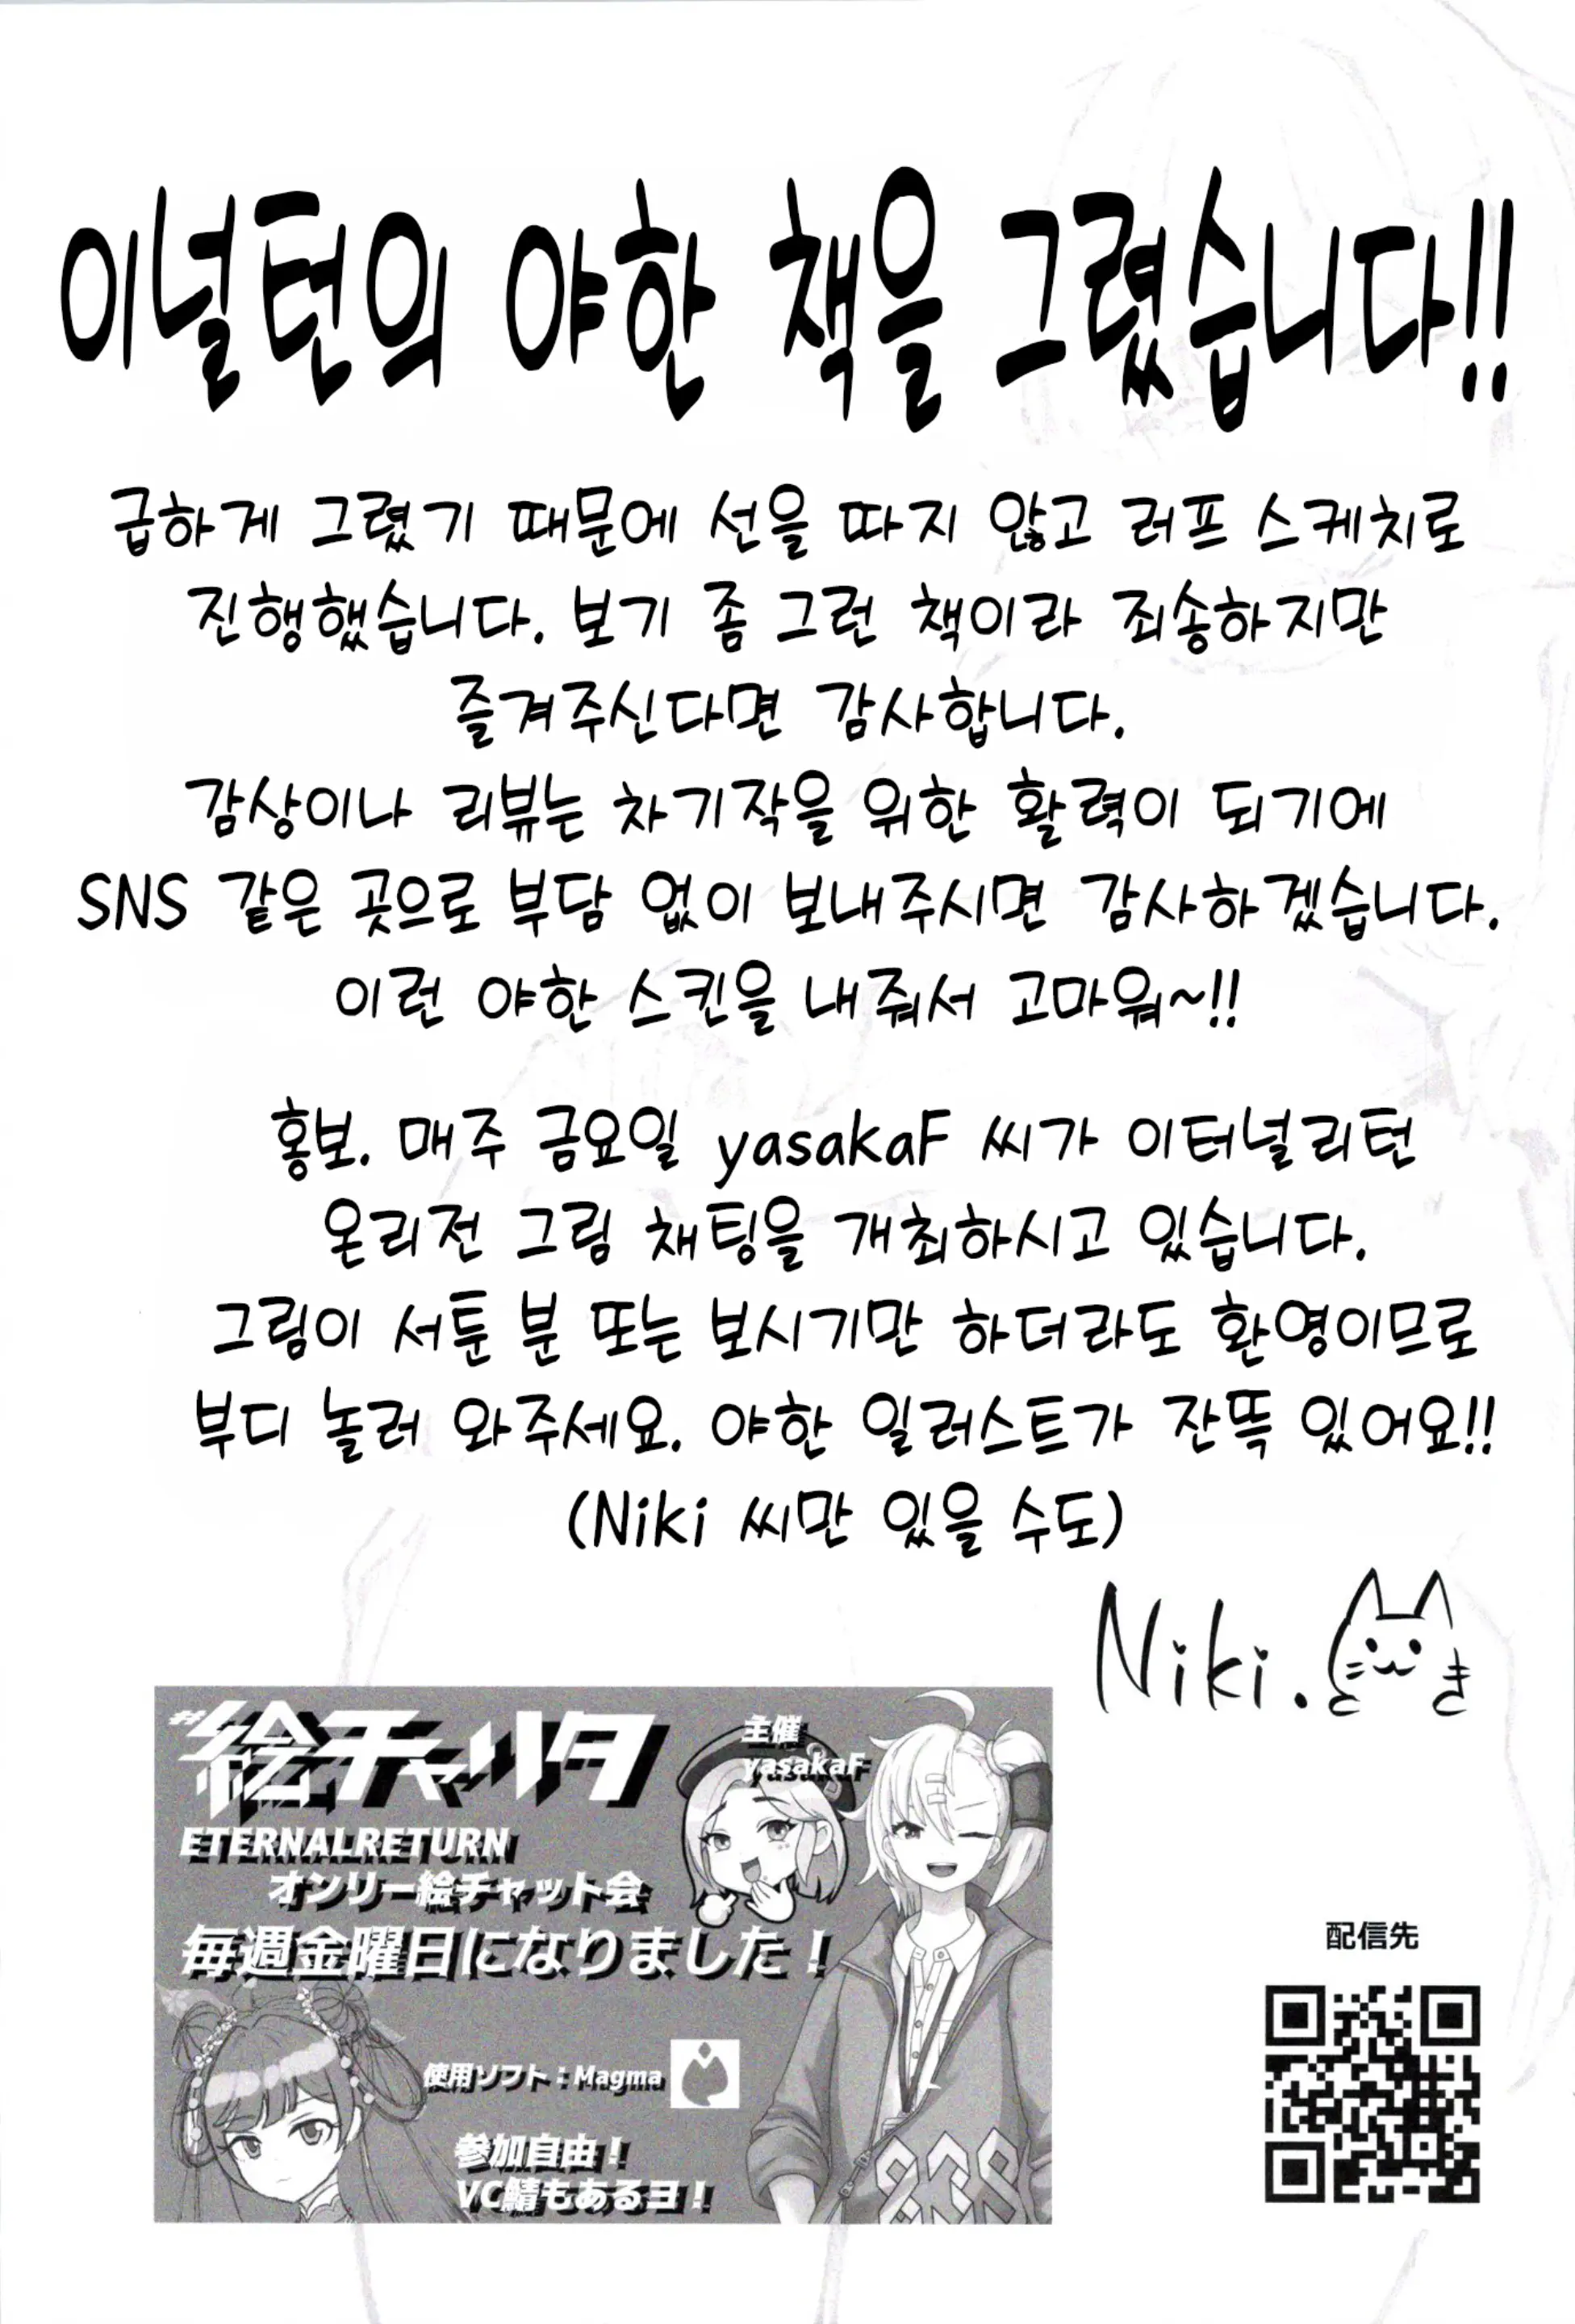 이널턴의 야한 책을 그렸습니다!!
급하게 그렸기 때문에 선을 따지 않고 러프 스케치로
진행했습니다. 보기 좀 그런 책이라 죄송하지만
즐겨주신다면 감사합니다.
감상이나 리뷰는 차기작을 위한 활력이 되기에
SNS 같은 곳으로 부담 없이 보내주시면 감사하겠습니다.
이런 야한 스킨을 내줘서 고마워~!!
홍보. 매주 금요일 yasakaF 씨가 이터널리턴
온리전 그림 채팅을 개최하시고 있습니다.
그림이 서툰 분 또는 보시기만 하더라도 환영이므로
부디 놀러 와주세요. 야한 일러스트가 잔뜩 있어요!!
(Niki 씨만 있을 수도)
Niki.
き
#絵チャハタ
主催
yasakaF
ETERNALRETURN
オンリー絵チャット会
毎週金曜日になりました！
使用ソフト：Magma
参加自由！
VC鯖もあるヨ！
配信先